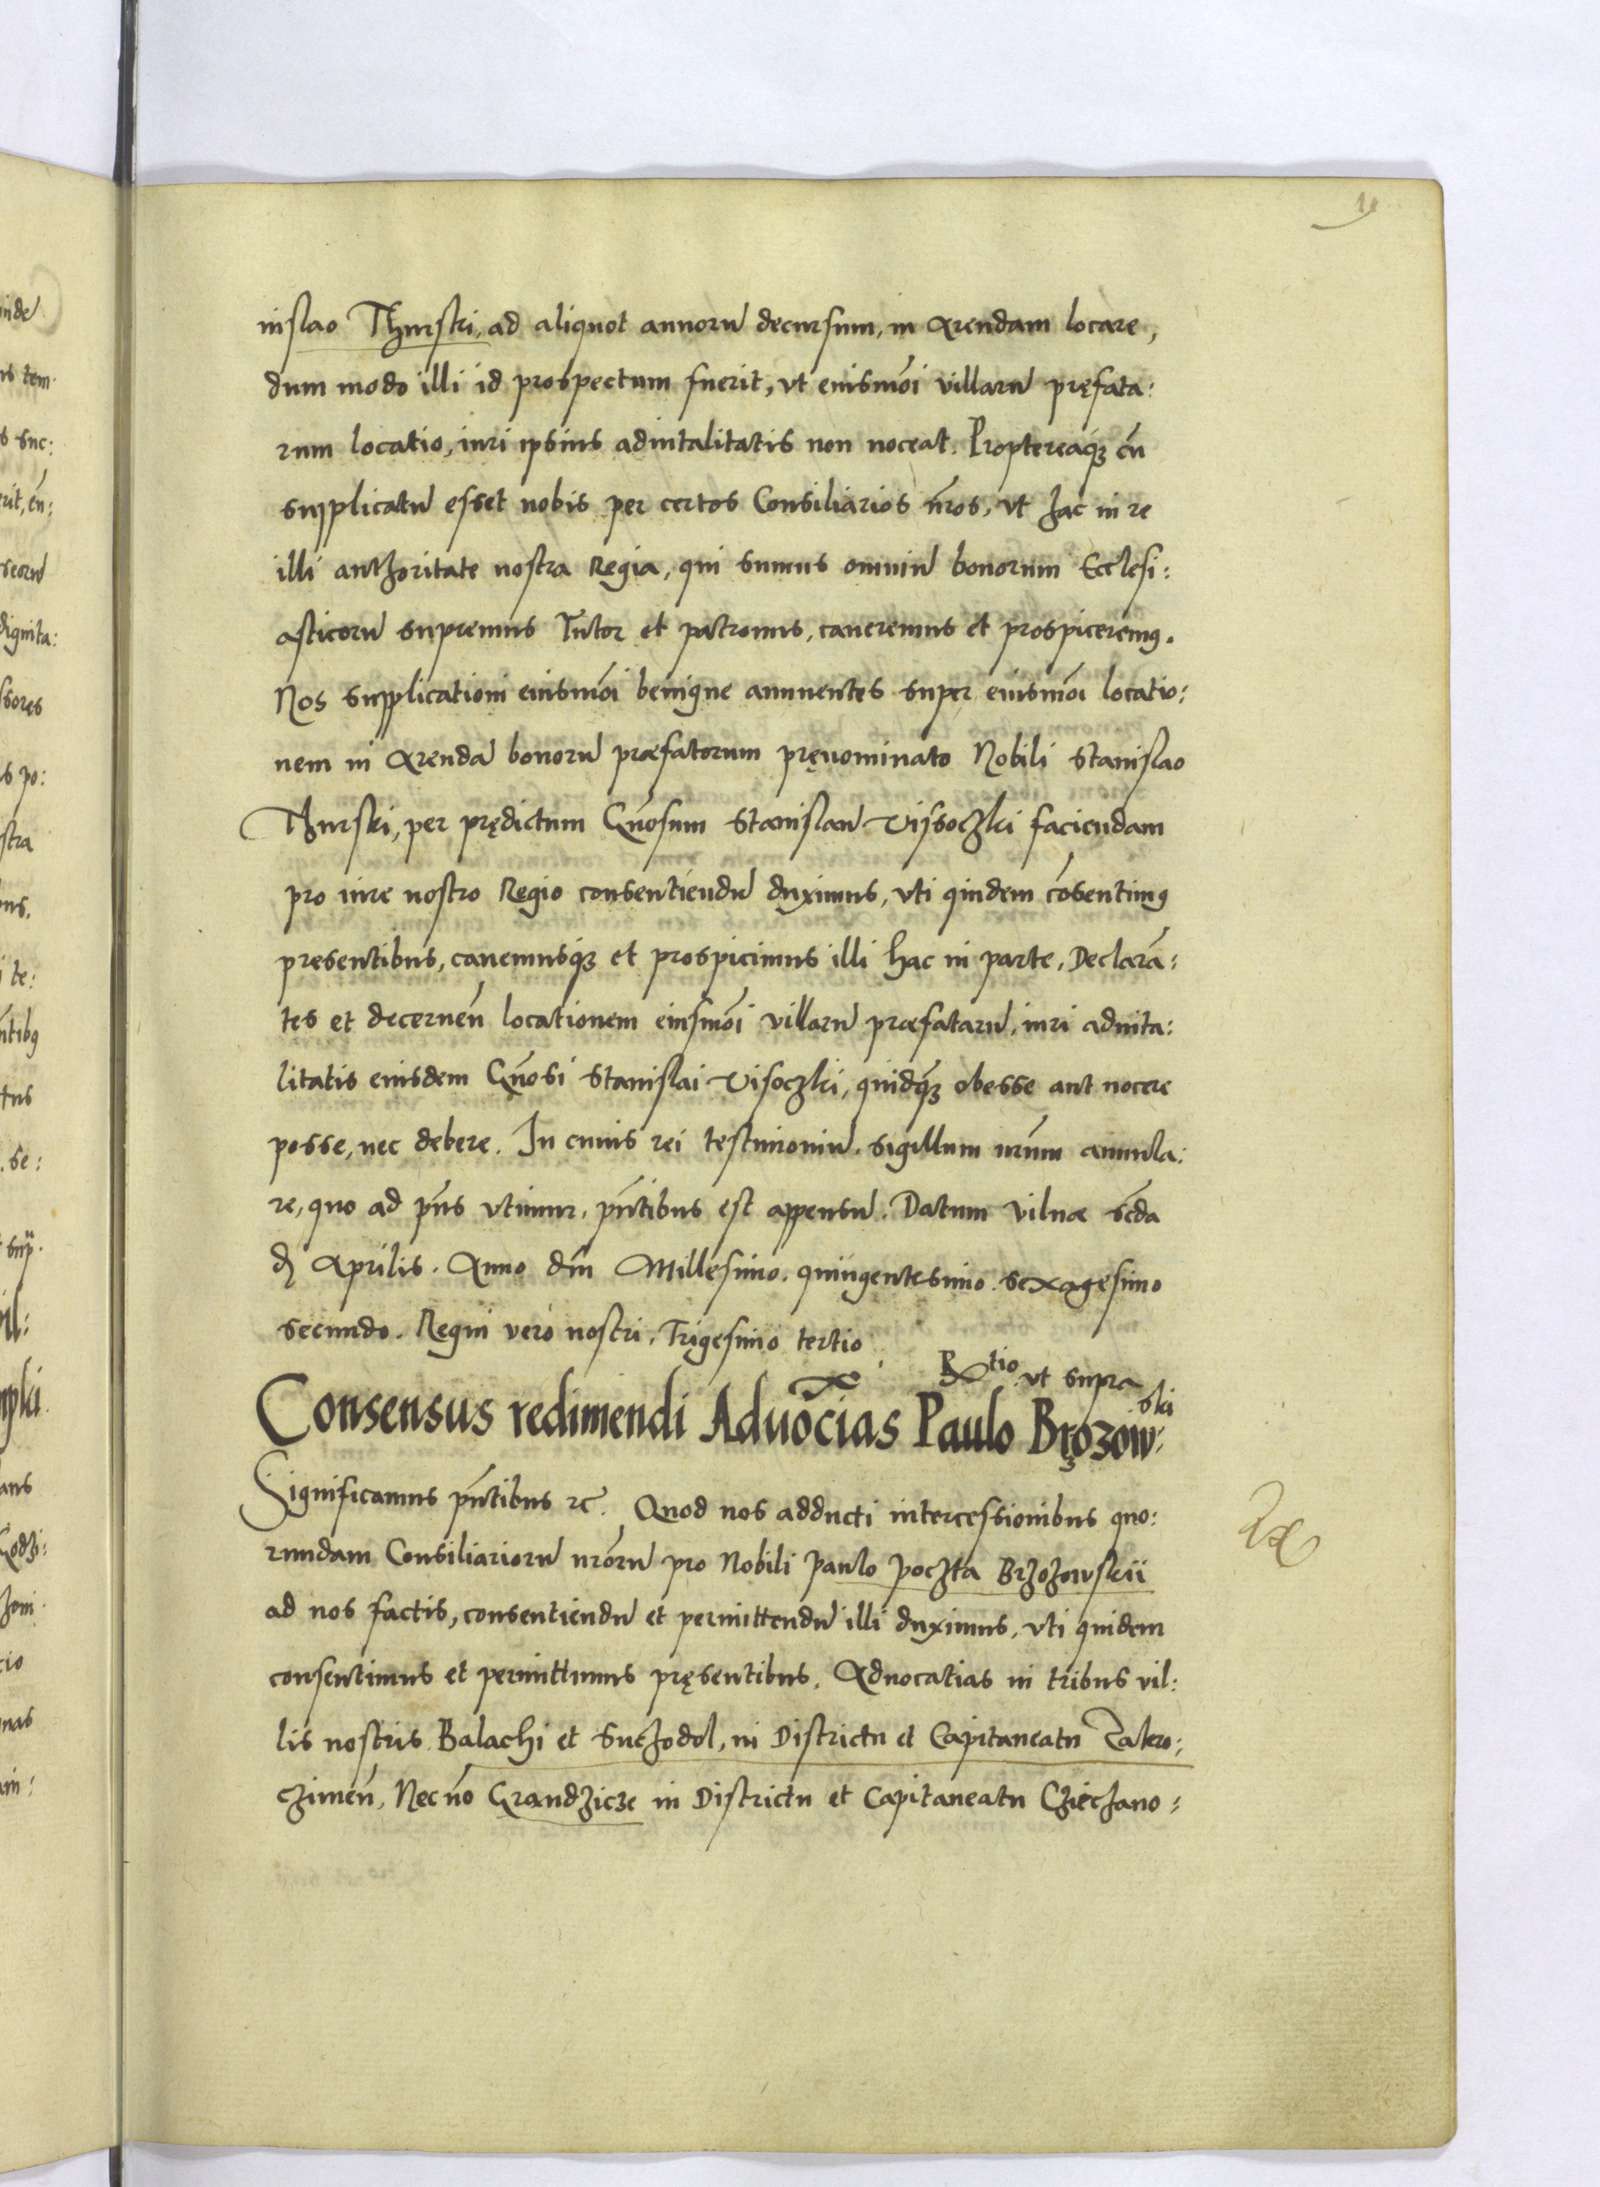 nislao Thurski, ad aliquot annorū decursum, in Arendam locare,
dum modo illi id prospectum fuerit, vt eiusmōi villarū pręfata:
rum locatio, iuri ipsius aduitalitatis non noceat. Proptereaq́ꝫ cū
supplicatū esset nobis per certos Consiliarios nr̄os, vt hac in re
illi authoritate nostra Regia, qui sumus omniū bonorum Ecclesi:
asticorū supremus Tutor et patronus, caueremus et prospiceremꝯ.
Nos supplicationi eiusmōi benigne annuentes super eiusmōi locatio:
nem in Arendā bonorū præfatorum pręnominato Nobili Stanislao
Thurski, per prędictum Gn̄osum Stanislaū Vijsoczki faciendam
pro iure nostro Regio consentiendū duximus, vti quidem cōsentimꝯ
presentibus, cauemusq́ꝫ et prospicimus illi hac in parte, Declarā:
tes et decernēn locationem eiusmōi villarū præfatarū, iuri aduita:
litatis eiusdem Gn̄osi Stanislai Visoczki, quidq́ꝫ obesse aut nocere
posse, nec debere. In cuius rei testimoniū. sigillum nrūm annula:
re, quo ad pn̄s vtimur, pn̄tibus est appensū. Datum Vilnæ Scd̄a
dj Aprilis. Anno dn̄i Millesimo. quingentesimo. sexagesimo
secundo. Regni vero nostri, Trigesimo tertio
R tio. vt supra
Consensus redimendi Aduōcias Paulo Brzozow:ski
Significamus pn̄tibus ꝛc̄. Quod nos adducti intercessionibus quo:
rundam Consiliariorū nrōrū pro Nobili Paulo Poczta Brzozowskii
ad nos factis, consentiendū et permittendū illi duximus, vti quidem
consentimus et permittimus pręsentibus, Aduocatias in tribus vil:
lis nostris Balachi et Suchodol, in Districtu et Capitaneatu Zakro:
czimēn, Necnō Grandzicze in Districtu et Capitaneatu Cziechano: